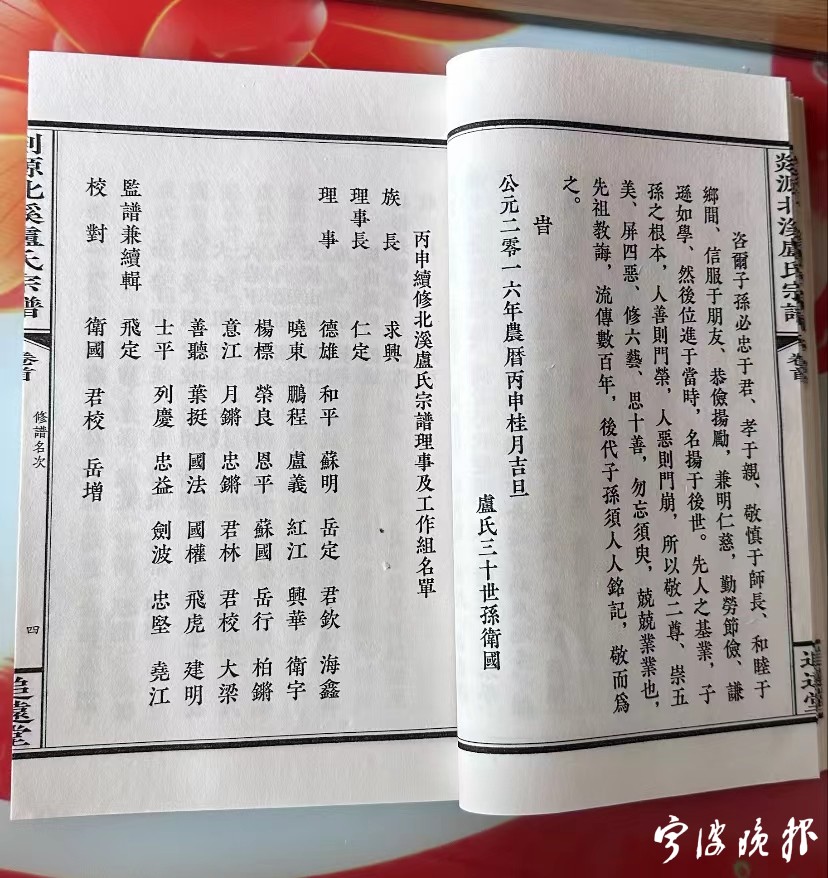 咨爾子孫必忠于君、孝于親、敬慎于師長、和睦于
鄉間、信服于朋友、恭儉揚勵，兼明仁慈，勤勞節儉、謙
遜如學、然後位進于當時，名揚于後世。先人之基業，子
孫之根本，人善則門榮，人惡則門崩，所以敬二尊、崇五
美、屏四惡、修六藝、思十善，勿忘須臾，兢兢業業也，
先祖教誨，流傳數百年，後代子孫須人人銘記，敬而爲
之。
旹
公元二零一六年農曆丙申桂月吉旦
盧氏三十世孫衛國
北溪盧氏宗譜
卷首
丙申續修北溪盧氏宗譜理事及工作組名單
族長 求興
理事長 仁定
理事 德雄 和平 蘇明 岳定 君欽 海鑫
曉東 鵬程 盧義 紅江 興華 衛宇
楊標 榮良 恩平 蘇國 岳行 柏鏘
意江 月鏘 忠鏘 君林 君校 大梁
善聽 葉挺 國法 國權 飛虎 建明
士平 列慶 忠益 劍波 忠堅 堯江
監譜兼續輯 飛定
校對 衛國 君校 岳增
源北溪盧氏宗譜
卷首
修譜名次
四
追遠堂
宁波晚报